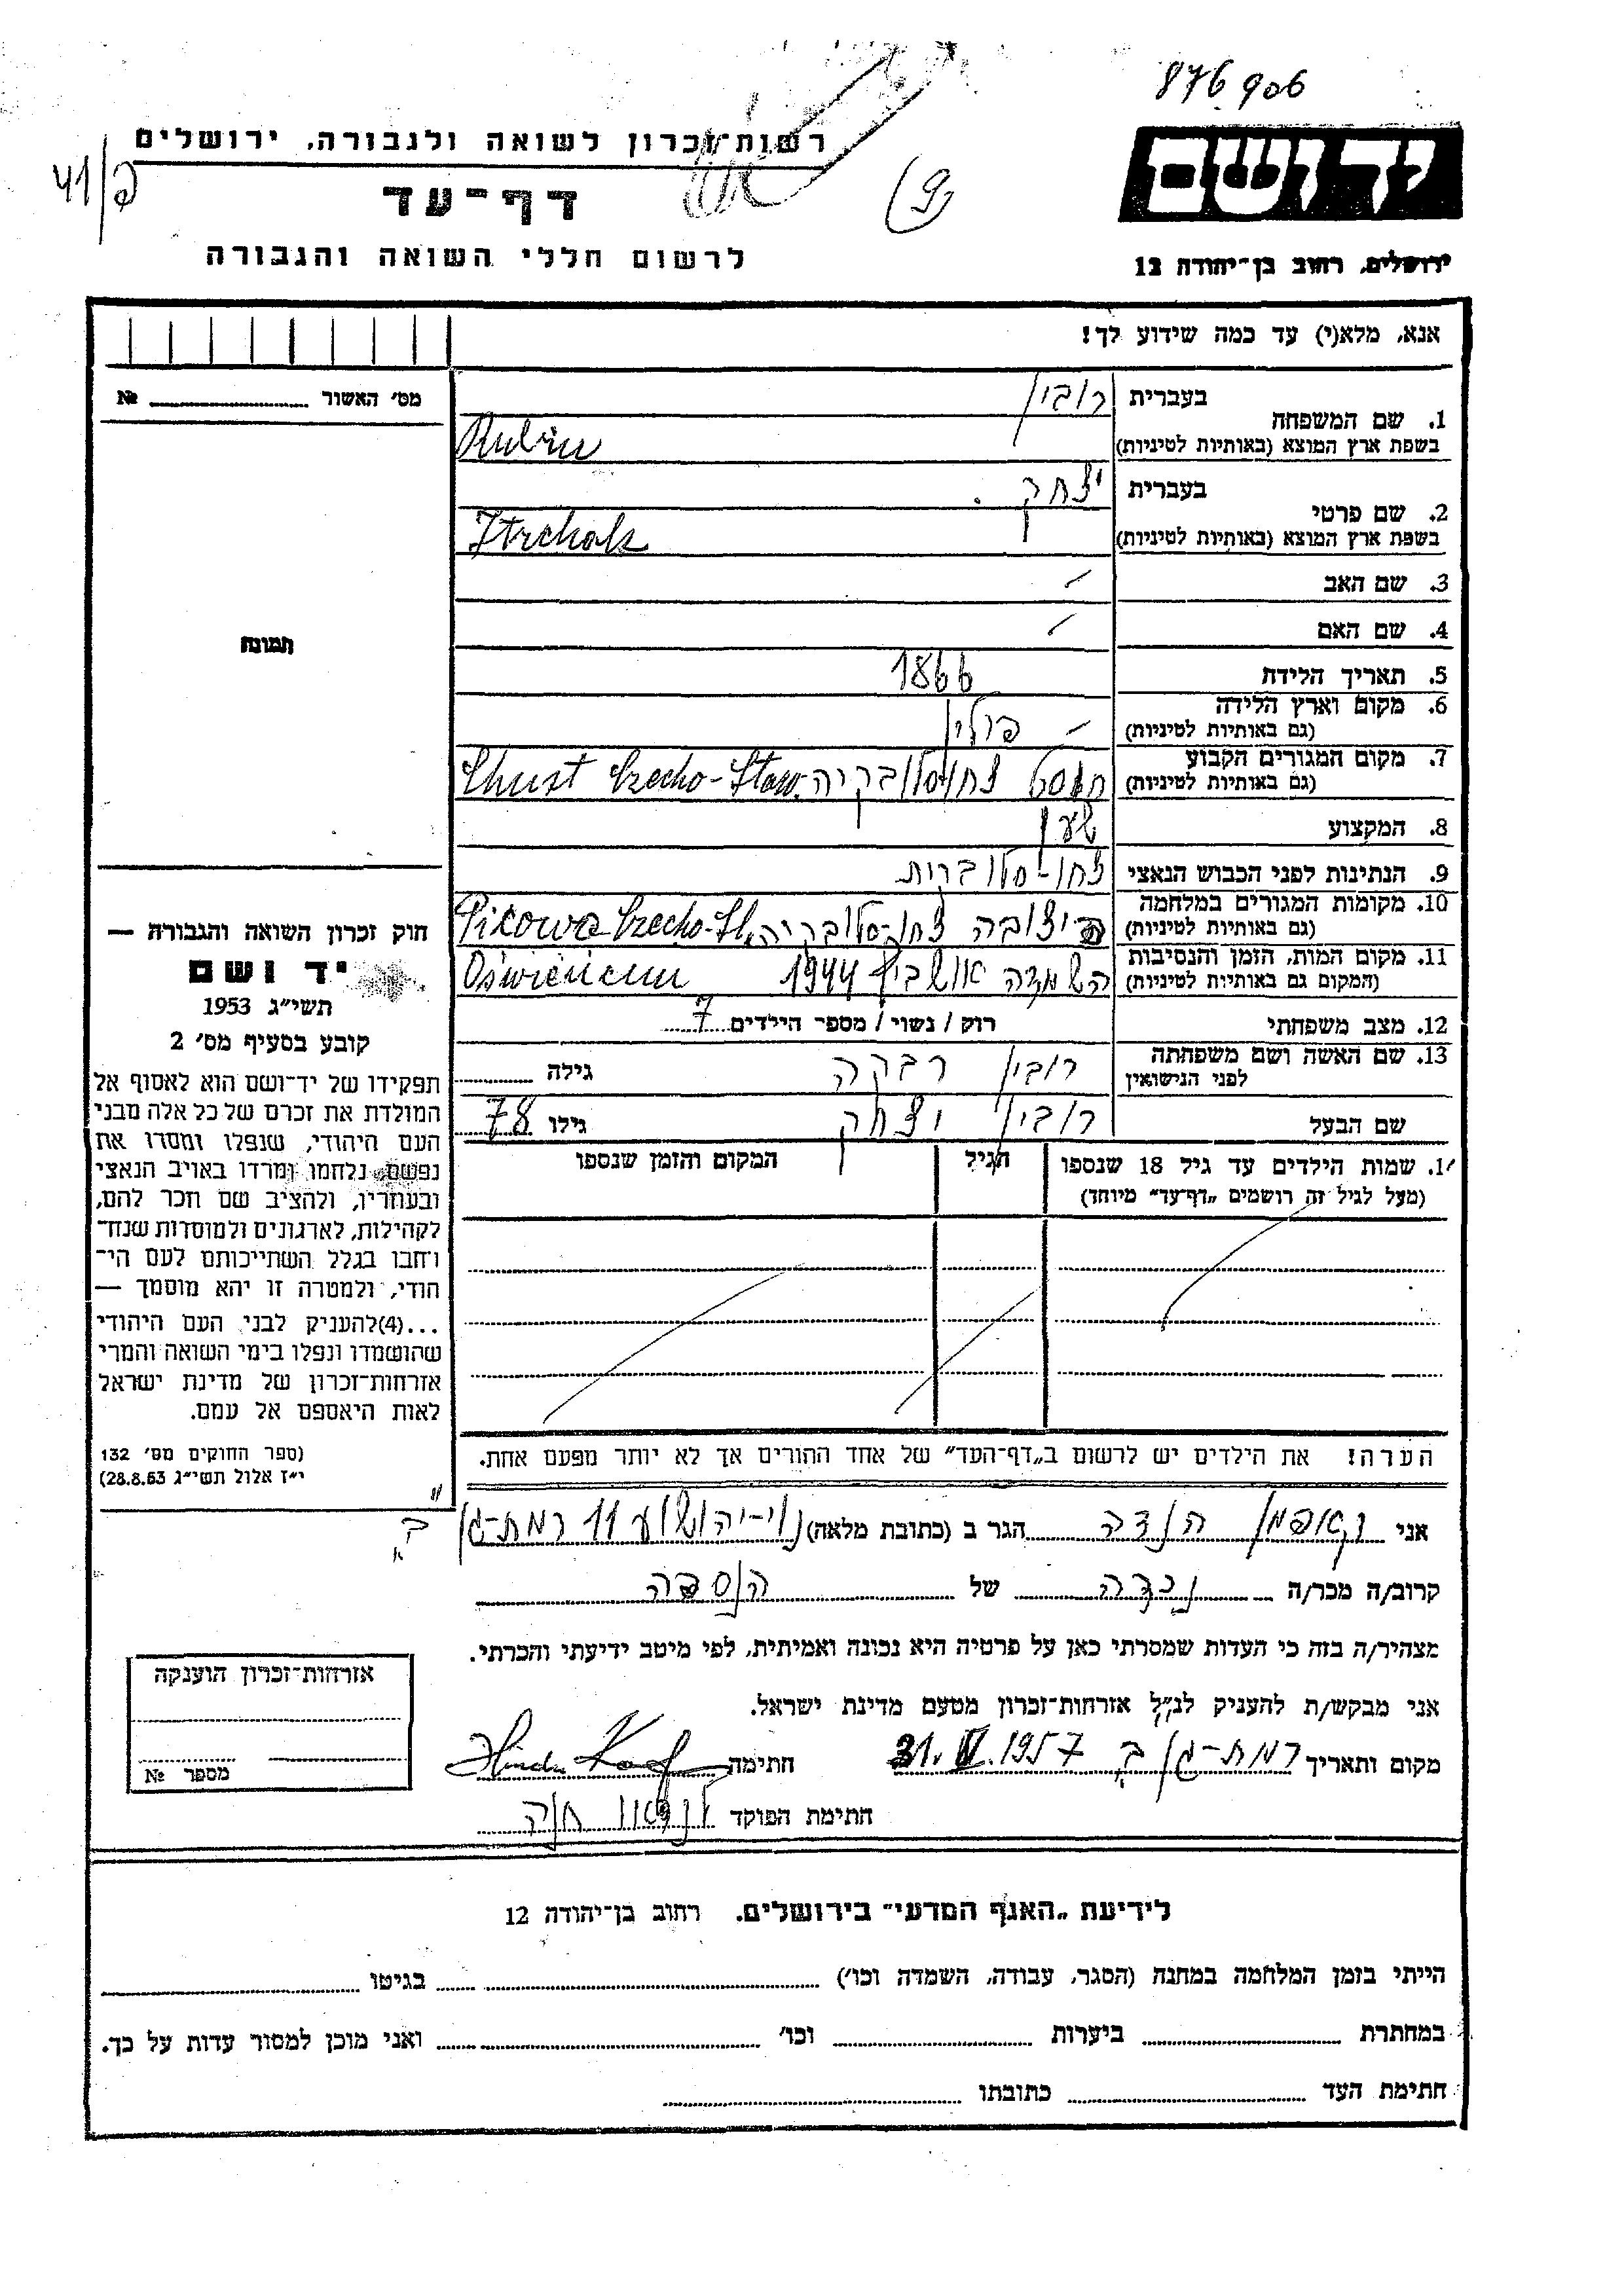 876906
רשות־זכרון לשואה ולגבורה, ירושלים
41/פ
דף־עד
(9)
יד ושם
לרשום חללי השואה והגבורה
ירושלים, רחוב בן־יהודה 12
אנא, מלא(י) עד כמה שידוע לך!
מס׳ האשור № 
1. שם המשפחה בעברית רובין
בשפת ארץ המוצא (באותיות לטיניות) Rubin
2. שם פרטי בעברית יצחק
בשפת ארץ המוצא (באותיות לטיניות) Itzchak
3. שם האב
4. שם האם
5. תאריך הלידה 1866
6. מקום וארץ הלידה (גם באותיות לטיניות) פולין
7. מקום המגורים הקבוע (גם באותיות לטיניות) חוסט צ'כוסלובקיה Chust Czecho-Slow.
8. המקצוע שען
9. הנתינות לפני הכבוש הנאצי צ'כו-סלוברית
10. מקומות המגורים במלחמה (גם באותיות לטיניות) Czecho-Sl.
11. מקום המות, הזמן והנסיבות (המקום גם באותיות לטיניות) השמדה אושביץ 1944
12. מצב משפחתי רוק / נשוי / מספר הילדים 7
13. שם האשה ושם משפחתה לפני הנישואין רובין רבקה גילה
שם הבעל רובין יצחק גילו 78
שמות הילדים עד גיל 18 שנספו (מעל לגיל זה רושמים „דף־עד״ מיוחד)
הגיל
המקום והזמן שנספו
הערה! את הילדים יש לרשום ב„דף־העד״ של אחד ההורים אך לא יותר מפעם אחת.
תמונה
חוק זכרון השואה והגבורה —
יד ושם
תשי״ג 1953
קובע בסעיף מס׳ 2
תפקידו של יד־ושם הוא לאסוף אל
המולדת את זכרם של כל אלה מבני
העם היהודי, שנפלו ומסרו את
נפשם, נלחמו ומרדו באויב הנאצי
ובעוזריו, ולהציב שם וזכר להם,
לקהילות, לארגונים ולמוסדות שנח־
רבו בגלל השתייכותם לעם הי־
הודי, ולמטרה זו יהא מוסמך —
...(4) להעניק לבני העם היהודי
שהושמדו ונפלו בימי השואה והמרי
אזרחות־זכרון של מדינת ישראל
לאות היאספם אל עמם.
(ספר החוקים מס׳ 132
י״ז אלול תשי״ג 28.8.53)
אני קאופמן הנדה הגר ב (כתובת מלאה) נוי-יהושוע 11 רמת-גן ב
קרוב/ה מכר/ה נכדה של הנספה
מצהיר/ה בזה כי העדות שמסרתי כאן על פרטיה היא נכונה ואמיתית, לפי מיטב ידיעתי והכרתי.
אני מבקש/ת להעניק לנ״ל אזרחות־זכרון מטעם מדינת ישראל.
מקום ותאריך רמת-גן ב 1957 חתימה
חתימת הפוקד
אזרחות־זכרון הוענקה
מספר №
לידיעת „האגף המדעי״ בירושלים. רחוב בן־יהודה 12
הייתי בזמן המלחמה במחנה (הסגר, עבודה, השמדה וכו׳) בגיטו
במחתרת ביערות וכו׳ ואני מוכן למסור עדות על כך.
חתימת העד כתובתו